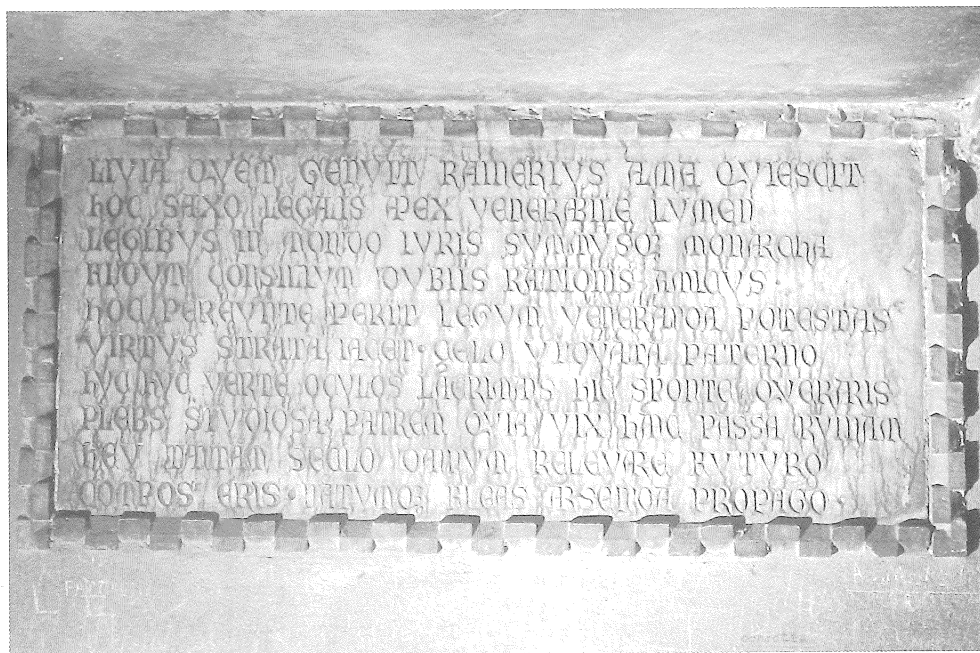 LIVIA QVEM GENVIT RAINERIVS ALMA QVIESCIT
HOC SAXO LEGALIS APEX VENERABILE LVMEN
LEGIBVS IN MONDO IVRIS SVMMVSQ; MONARCHA
FIDVM CONSILIVM DVBIIS RATIONIS AMICVS
HOC PEREVNTE PERIT LEGVM VENERANDA POTESTAS
VIRTVS STRATA IACET · CELO VIDVATA PATERNO
HVC HVC VERTE OCVLOS LACRIMANS HIC SPONTE QVERARIS
PLEBS STVDIOSA PATREM QVIA VIX HINC PASSA RVINAM
HEV TANTAM SECLO DAMNVM RELEVARE FVTVRO
COMPOS ERIS · NATVMQ; FLEAS ARSENDA PROPAGO ·